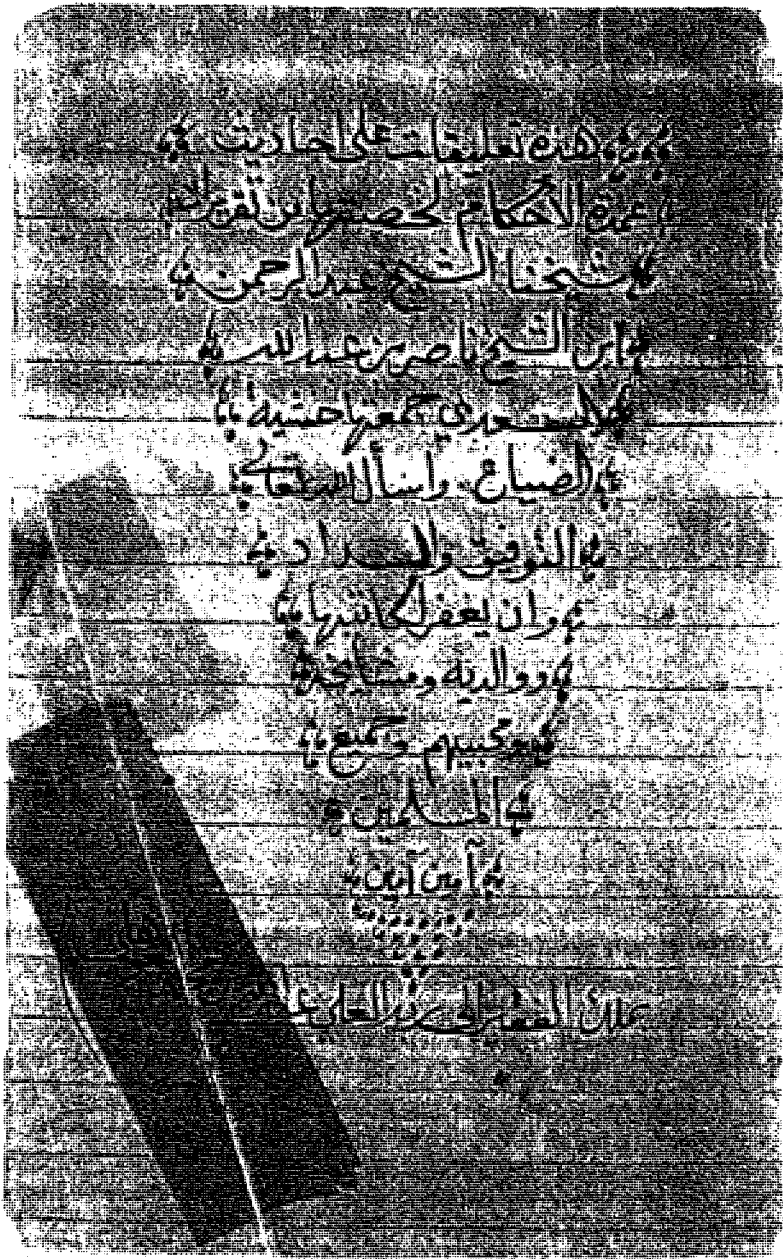 هذه تعليقات على احاديث
عمدة الأحكام لخصتها من تقرير
شيخنا الشيخ عبد الرحمن
ابن الشيخ ناصر بن عبد الله
السعدي جمعتها خشية
الضياع، واسأل الله تعالى
التوفيق والسداد
وان يغفر لكاتبها
ووالديه ومشايخه
ومحبيهم وجميع
المسلمين
آمين آمين
الفقير الى ربه العلي